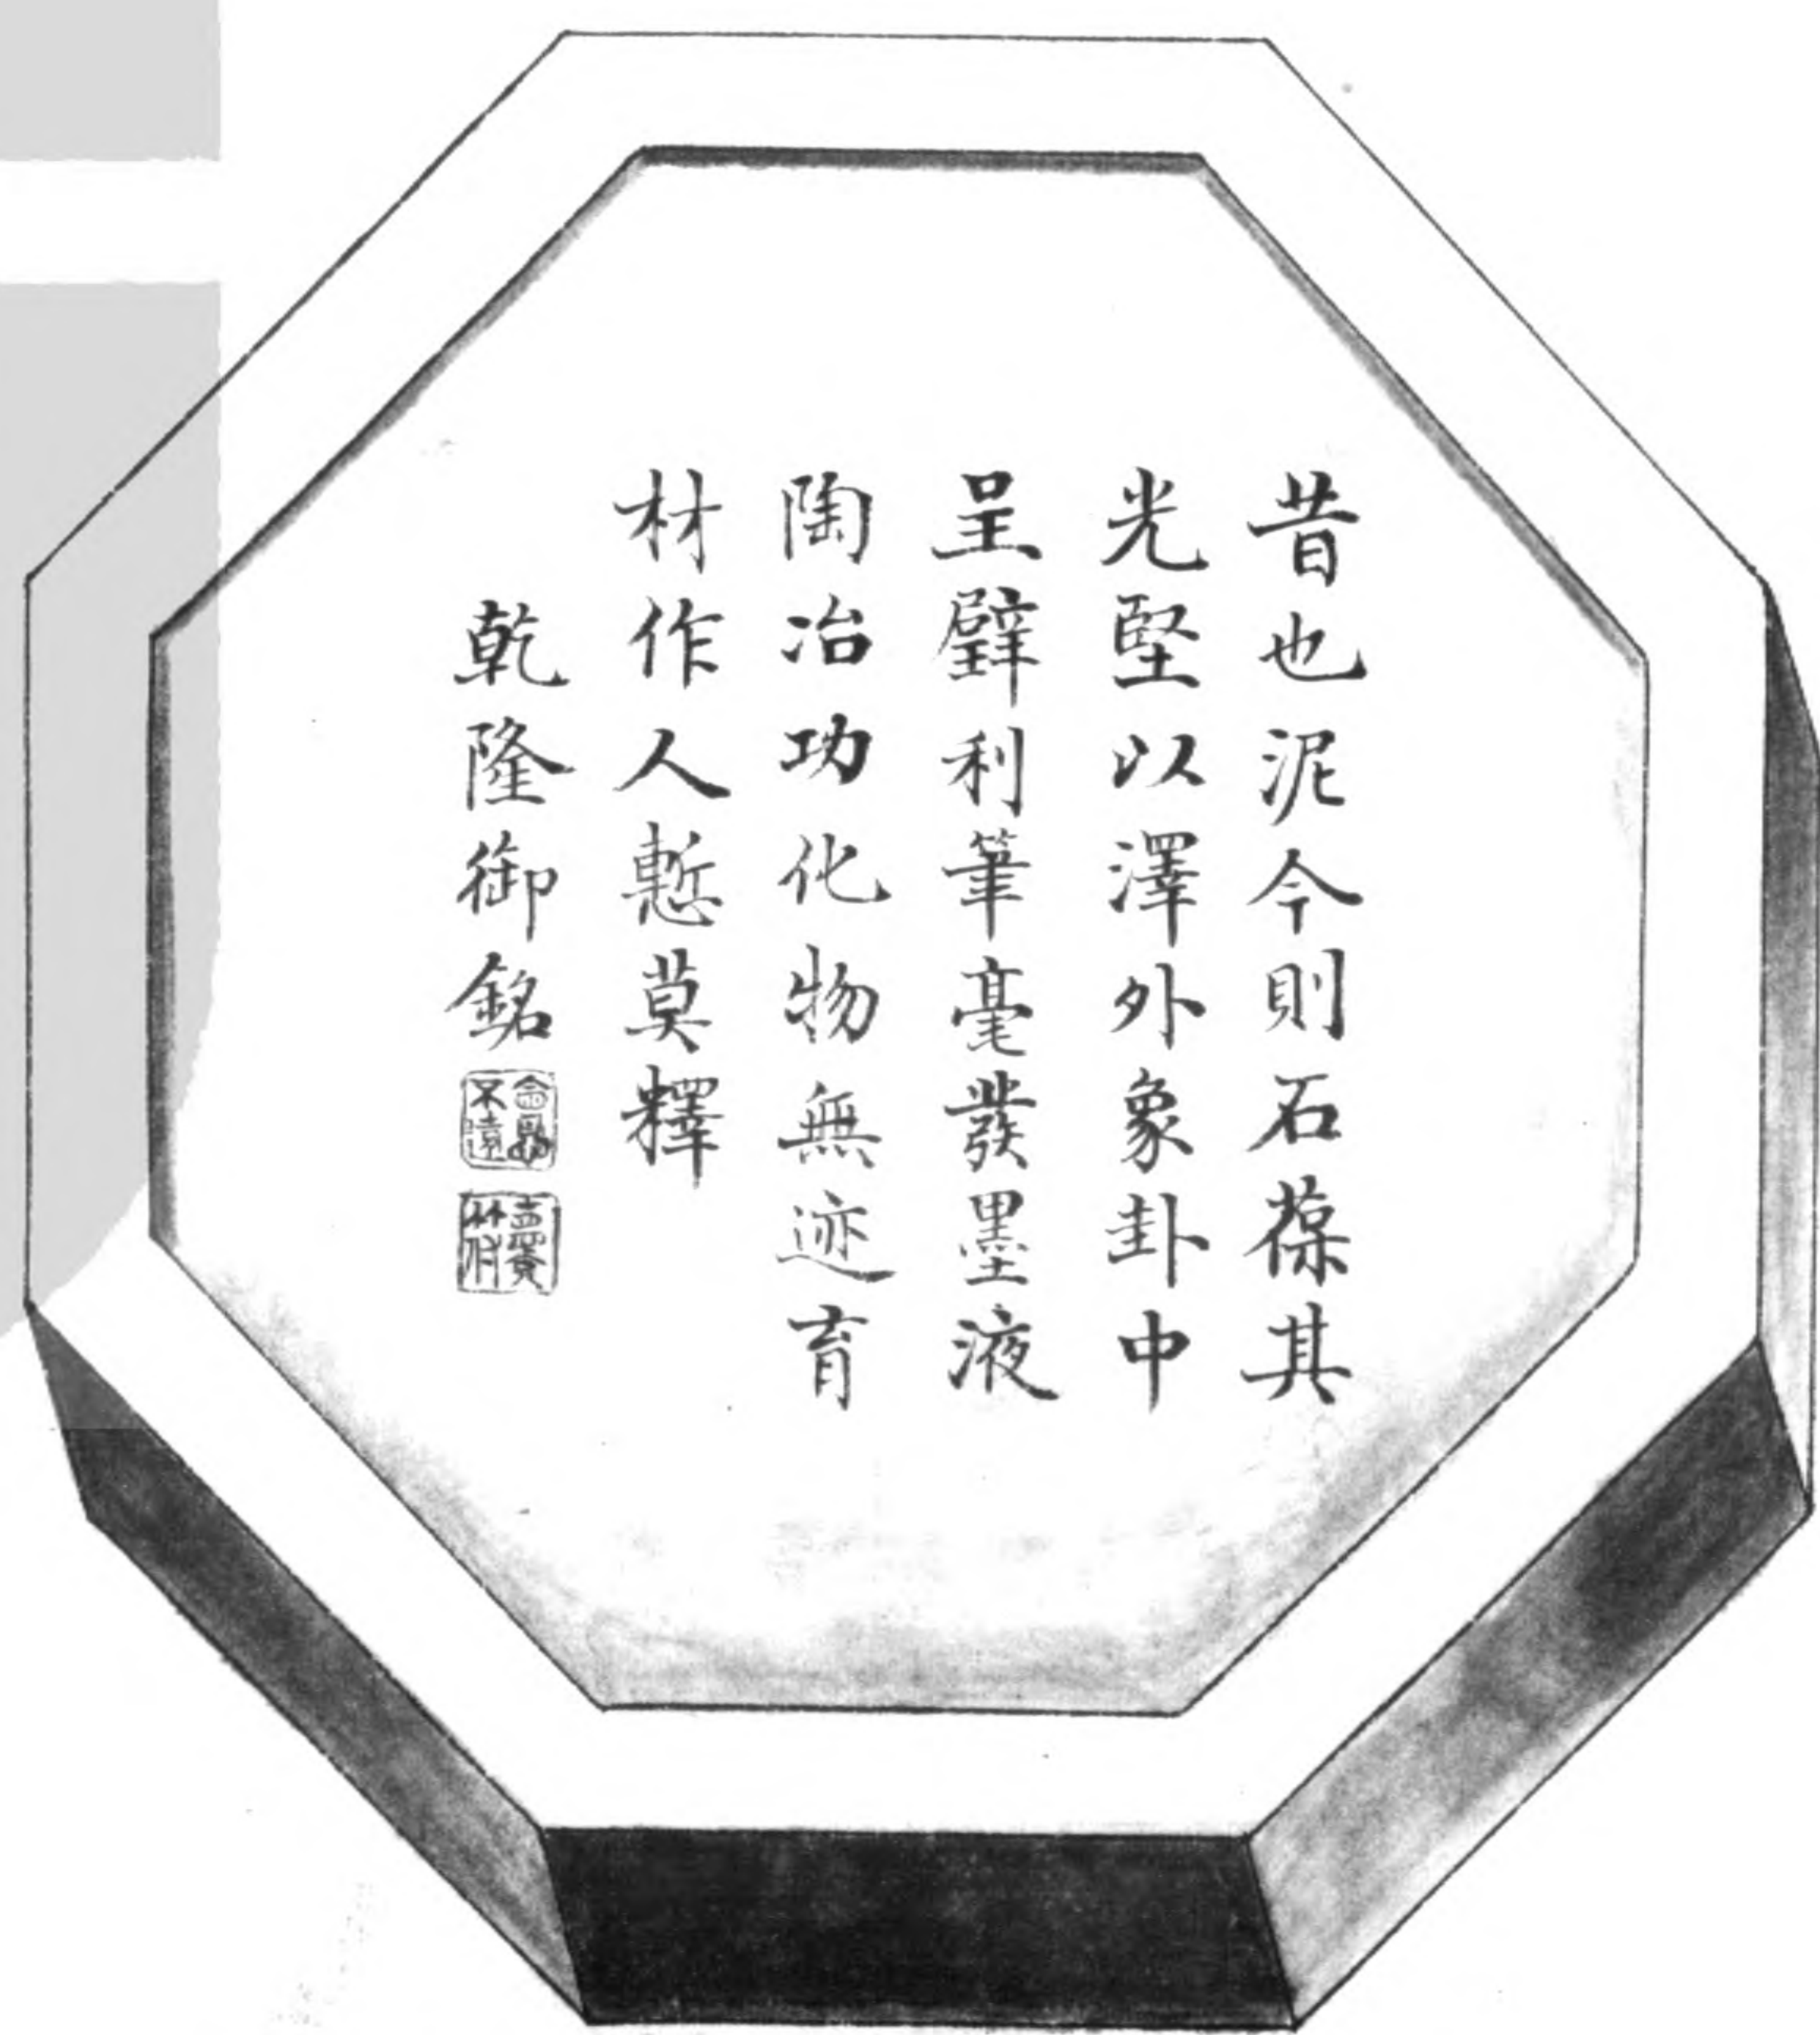 昔也泥今則石葆其
光堅以澤外象卦中
呈璧利筆毫發墨液
陶冶功化物無迹育
材作人慙莫釋
乾隆御銘
會心不遠
悳充符